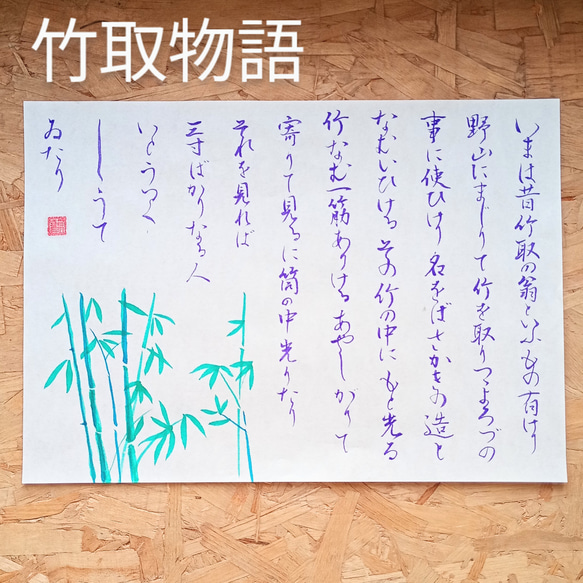 竹取物語
いまは昔竹取の翁といふもの有けり
野山にまじりて竹を取りつゝよろづの
事に使ひけり名をばさかきの造と
なむいひける其の竹の中にもと光る
竹なむ一筋ありけるあやしがりて
寄りて見るに筒の中光りたり
それを見れば
三寸ばかりなる人
いとうつく
しうて
ゐたり